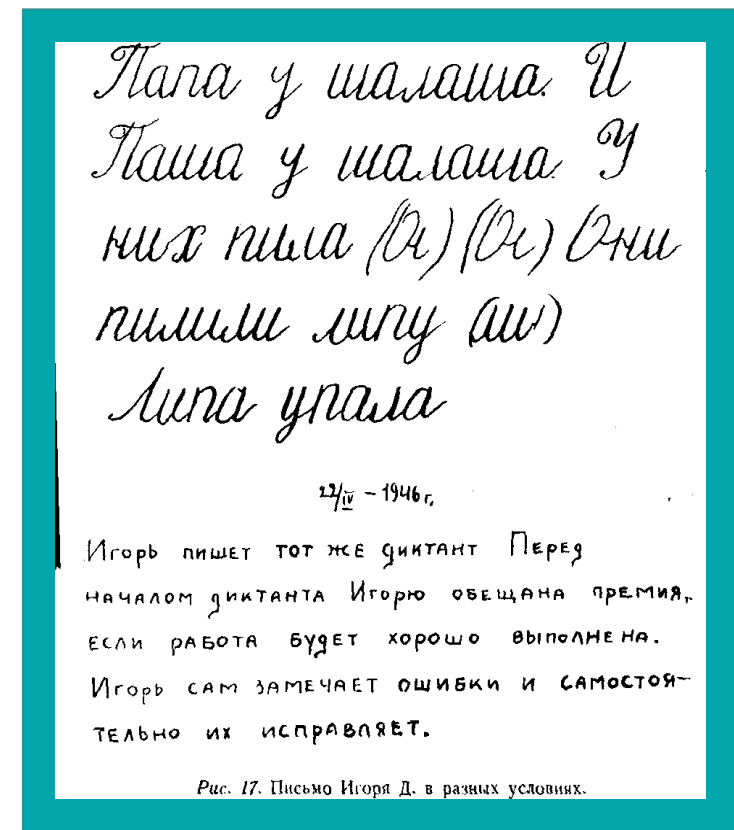 Папа у шалаша. И
Паша у шалаша. У
них пила (Ог) (Ог) Они
пилили липу (аш)
Липа упала
22/IV – 1946 г.
Игорь пишет тот же диктант Перед
началом диктанта Игорю обещана премия,
если работа будет хорошо выполнена.
Игорь сам замечает ошибки и самостоя-
тельно их исправляет.
Рис. 17. Письмо Игоря Д. в разных условиях.